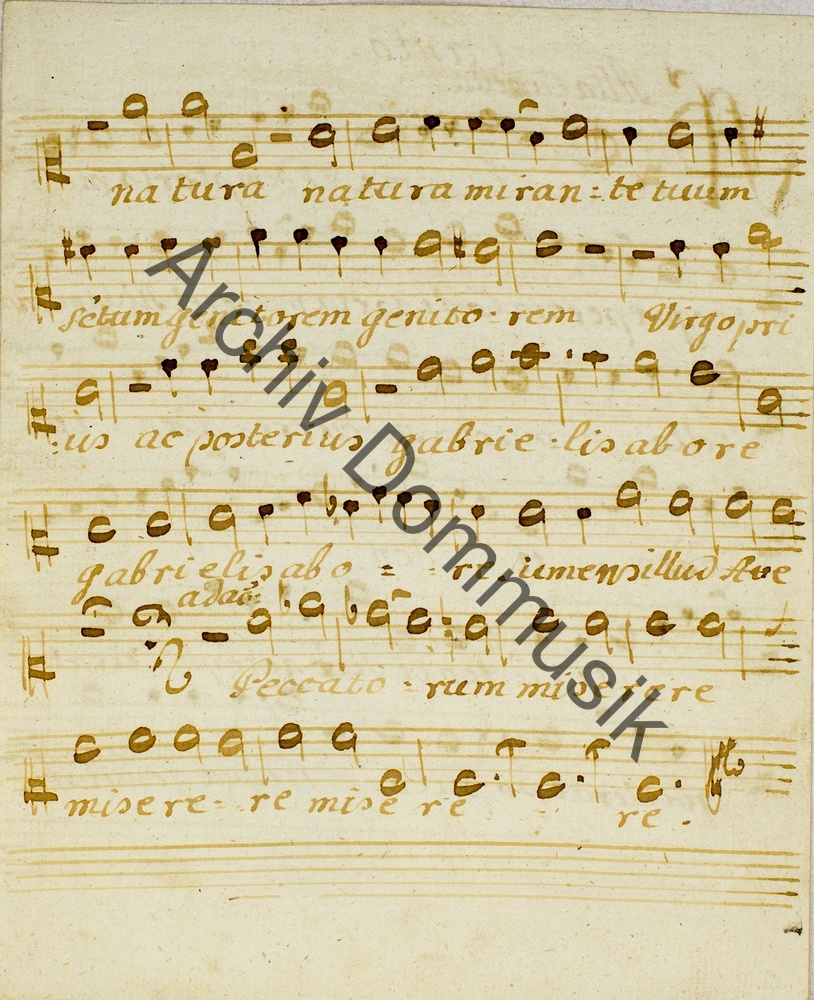 na tura natura miran=te tuum
sétum genitorem genito=rem Virgo pri
:us ac posterius gabrie=lis ab ore
gabrielis ab o = re sumens illud Ave
adaº:
Peccato=rum miserere
misere=re misere re.
Archiv Dommusik